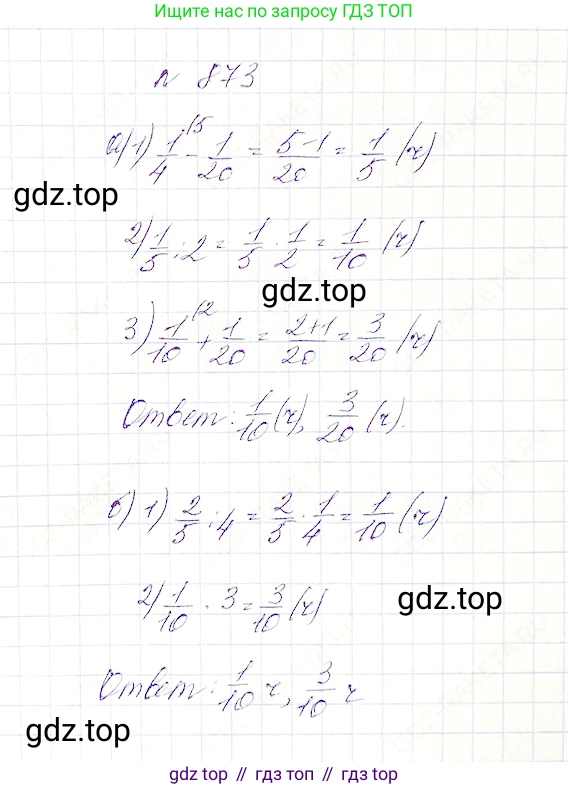 Ищите нас в поиске по запросу ГДЗ ТОП
№ 873
а) 1) 1/4 \5 - 1/20 = 5-1/20 = 1/5 (ч)
gdz.top
2) 1/5 : 2 = 1/5 · 1/2 = 1/10 (ч)
gdz.top
3) 1/10 \2 + 1/20 = 2+1/20 = 3/20 (ч)
Ответ: 1/10 (ч), 3/20 (ч).
б) 1) 2/5 : 4 = 2/5 · 1/4 = 1/10 (ч)
2) 1/10 · 3 = 3/10 (ч)
gdz.top
Ответ: 1/10 ч, 3/10 ч
gdz.top
gdz top // гдз топ // гдз top